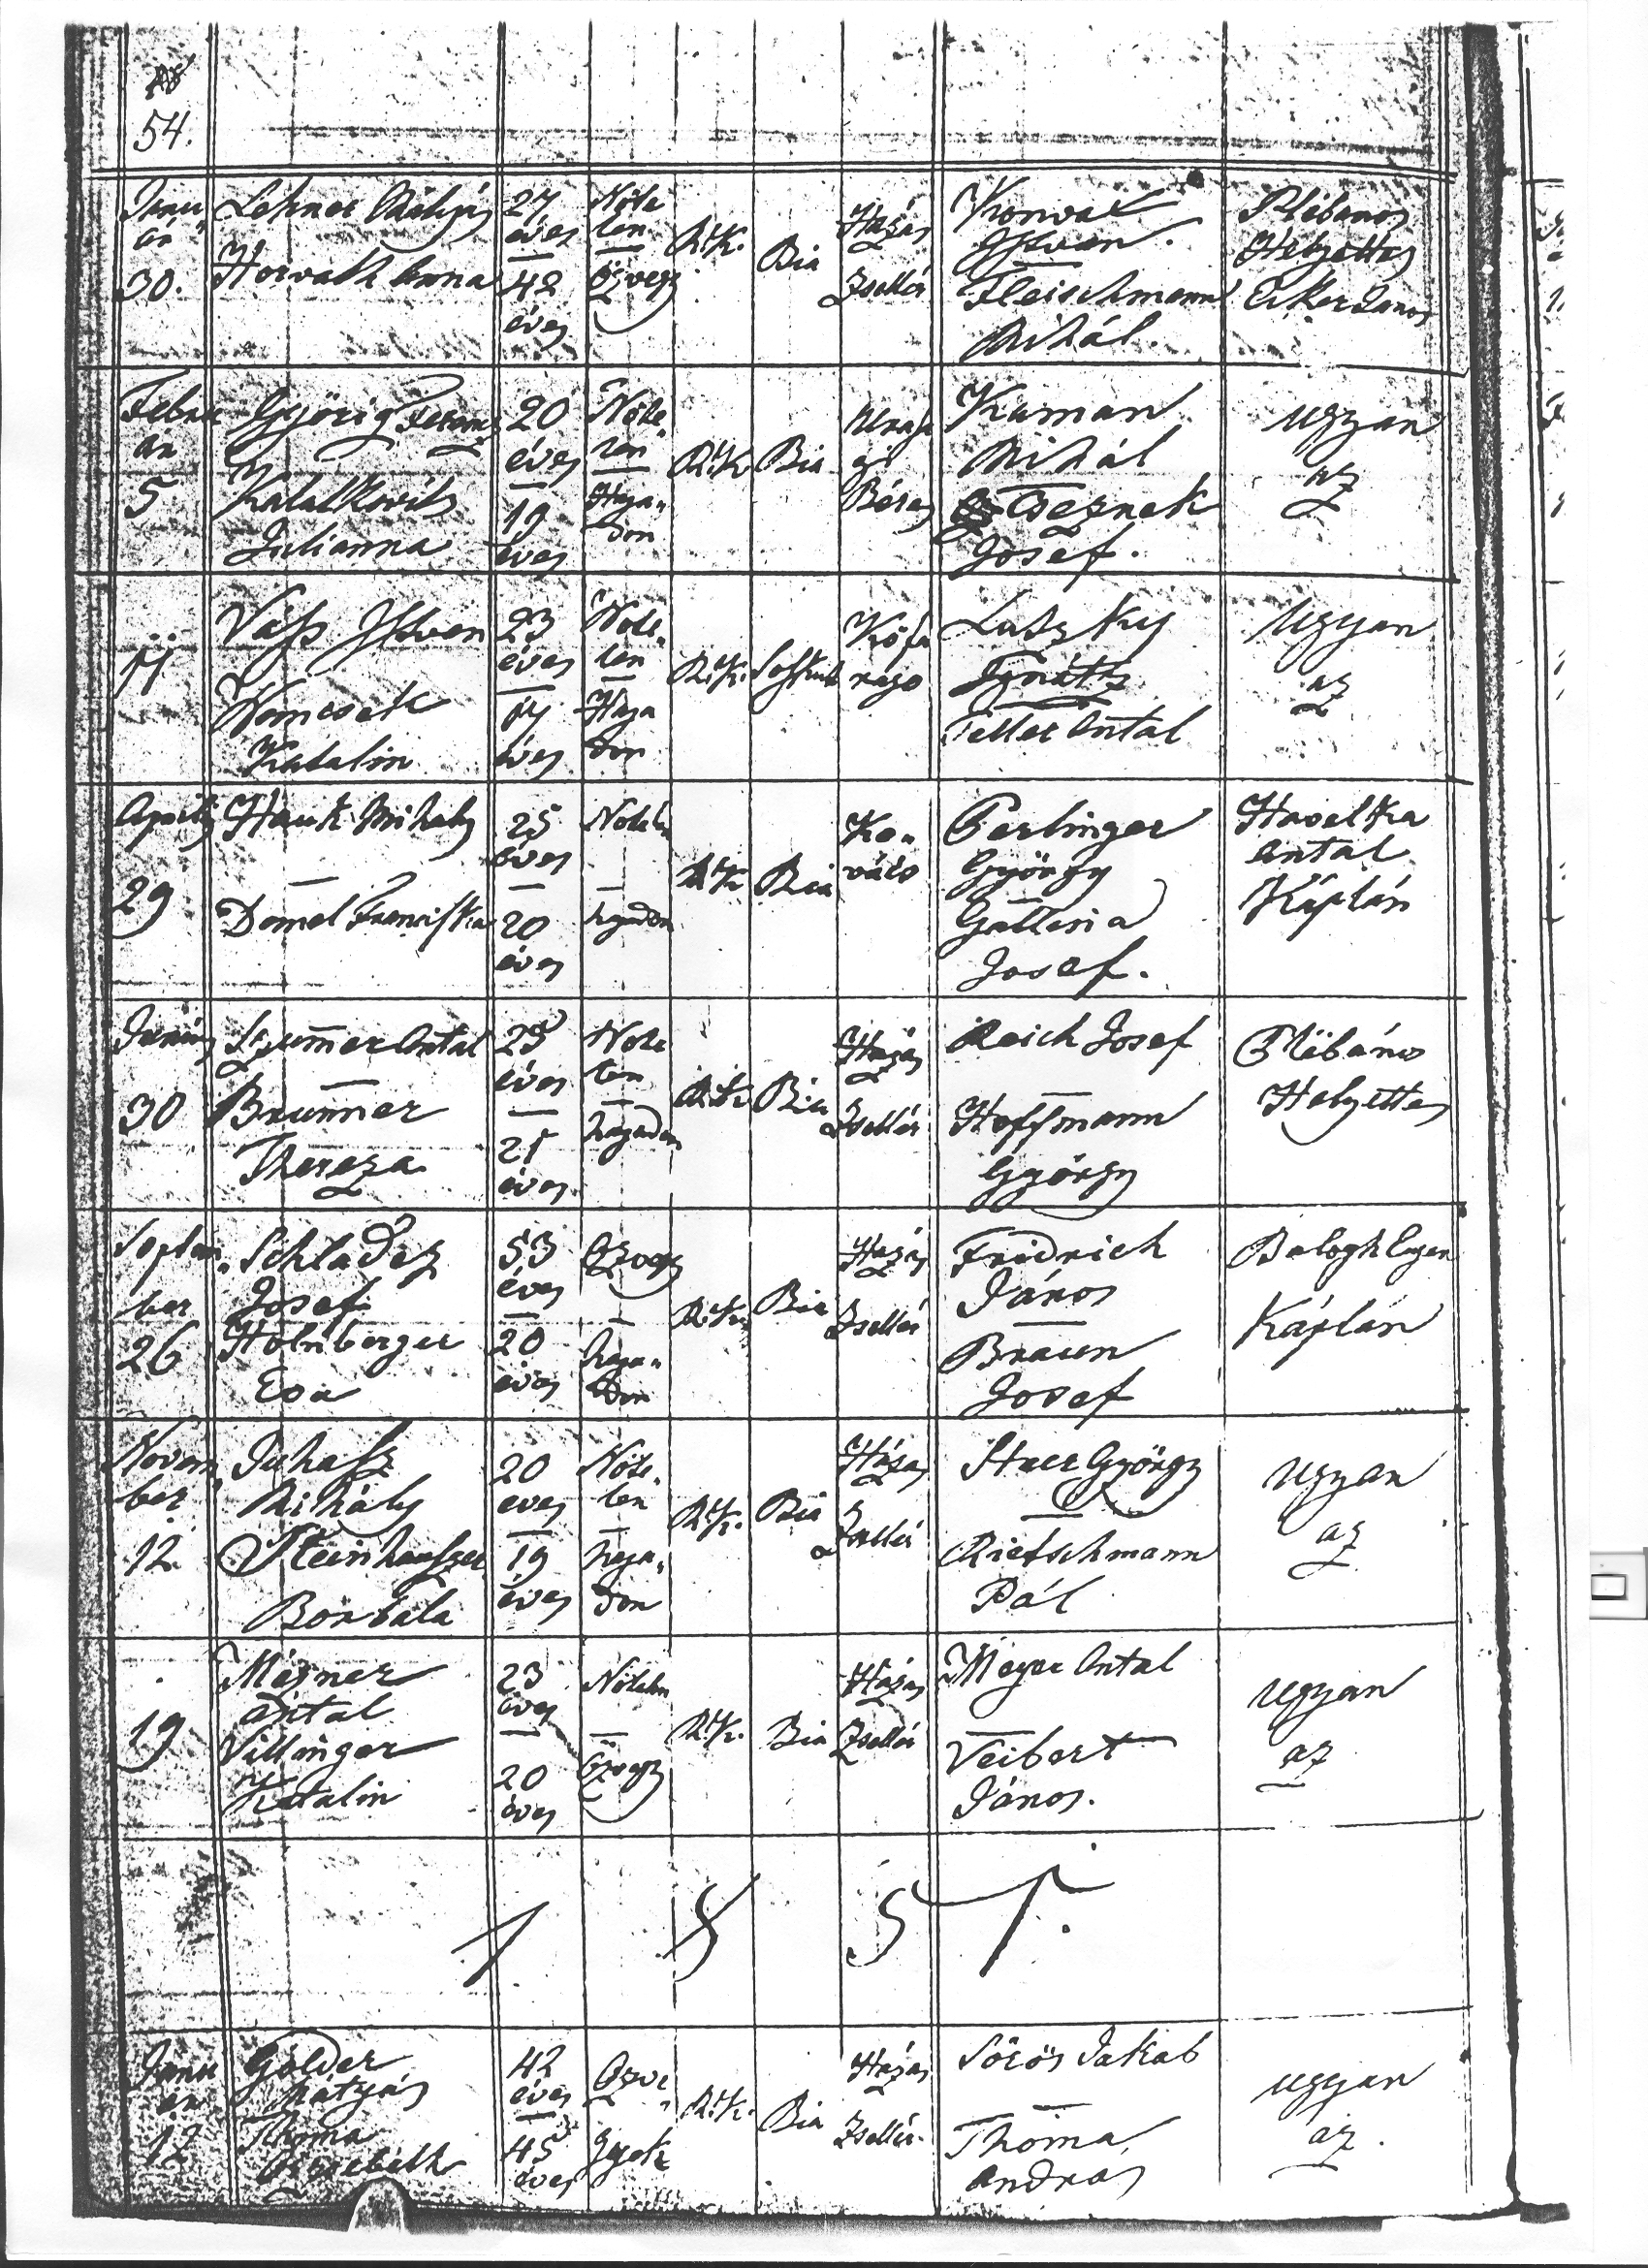 54.
Lehner Mátyás
27 éves
Nőte
len
R.K.
Bia
Házas
Zsellér
Horvat
Istvan.
Fleischmann
Mihál.
Plébanos
Helyettes
Ecker Janos
30.
Horvath Anna
42
éves
Özvegy
Februar
án
5
Györig Ferencz
Julianna
20
éves
19
éves
Nőte„
len
Haja„
don
R.K
Bia
Béres
Kuman
Mihál
Csesznek
Josef.
Ugyan
az
Vass Istvan
Nemcsek
Katalin
23
éves
éves
Nőte„
len
Haja
don
R.K.
Kőfa
rago
Laszky
Ignátz
Feller Antal
Ugyan
az
Aprilis
29
Hauk Mihaly
Domel Franciska
25
éves
20
éves
Nőtelen
hajadon
R.K
Bia
Ko„
vács
Perlinger
György
Galleria
Josef.
Havelka
Antal
Káplán
30
Brunner
Thereza
23
éves
21
éves
Nőte
len
hajadon
R.K
Bia
Házas
Zsellér
Reich Josef
Hoffmann
György
Plébános
Helyettes
Septem„
ber
26
Schladez
Josef
Holnberger
Eva
53
éves
20
éves
Özvegy
haja„
don
R.K.
Bia
Házas
Zsellér
Fridrich
János
Braun
Josef
Balogh Eugen
Káplán
Novem„
ber
12.
Juhasz
Mihály
Steinhauszer
Borbála
20
éves
19
éves
Nőte„
len
haja„
don
R.K.
Bia
Házas
Zsellér
György
Rietschmann
Pál
Ugyan
az
19
Antal
Villinger
Katalin
23
éves
20
éves
Nőtelen
Özvegy
R.K.
Bia
Házas
Zsellér
Meyer Antal
Veibert
János.
Ugyan
az
1 8 5 7.
Janu
ár
12
Golder
Mátyás
Thoma
Erzsebéth
42
éves
45
éves
Özve„
gyek
R.K.
Bia
Házas
Zsellér.
Sörös Jakab
Thoma
András
Ugyan
az.